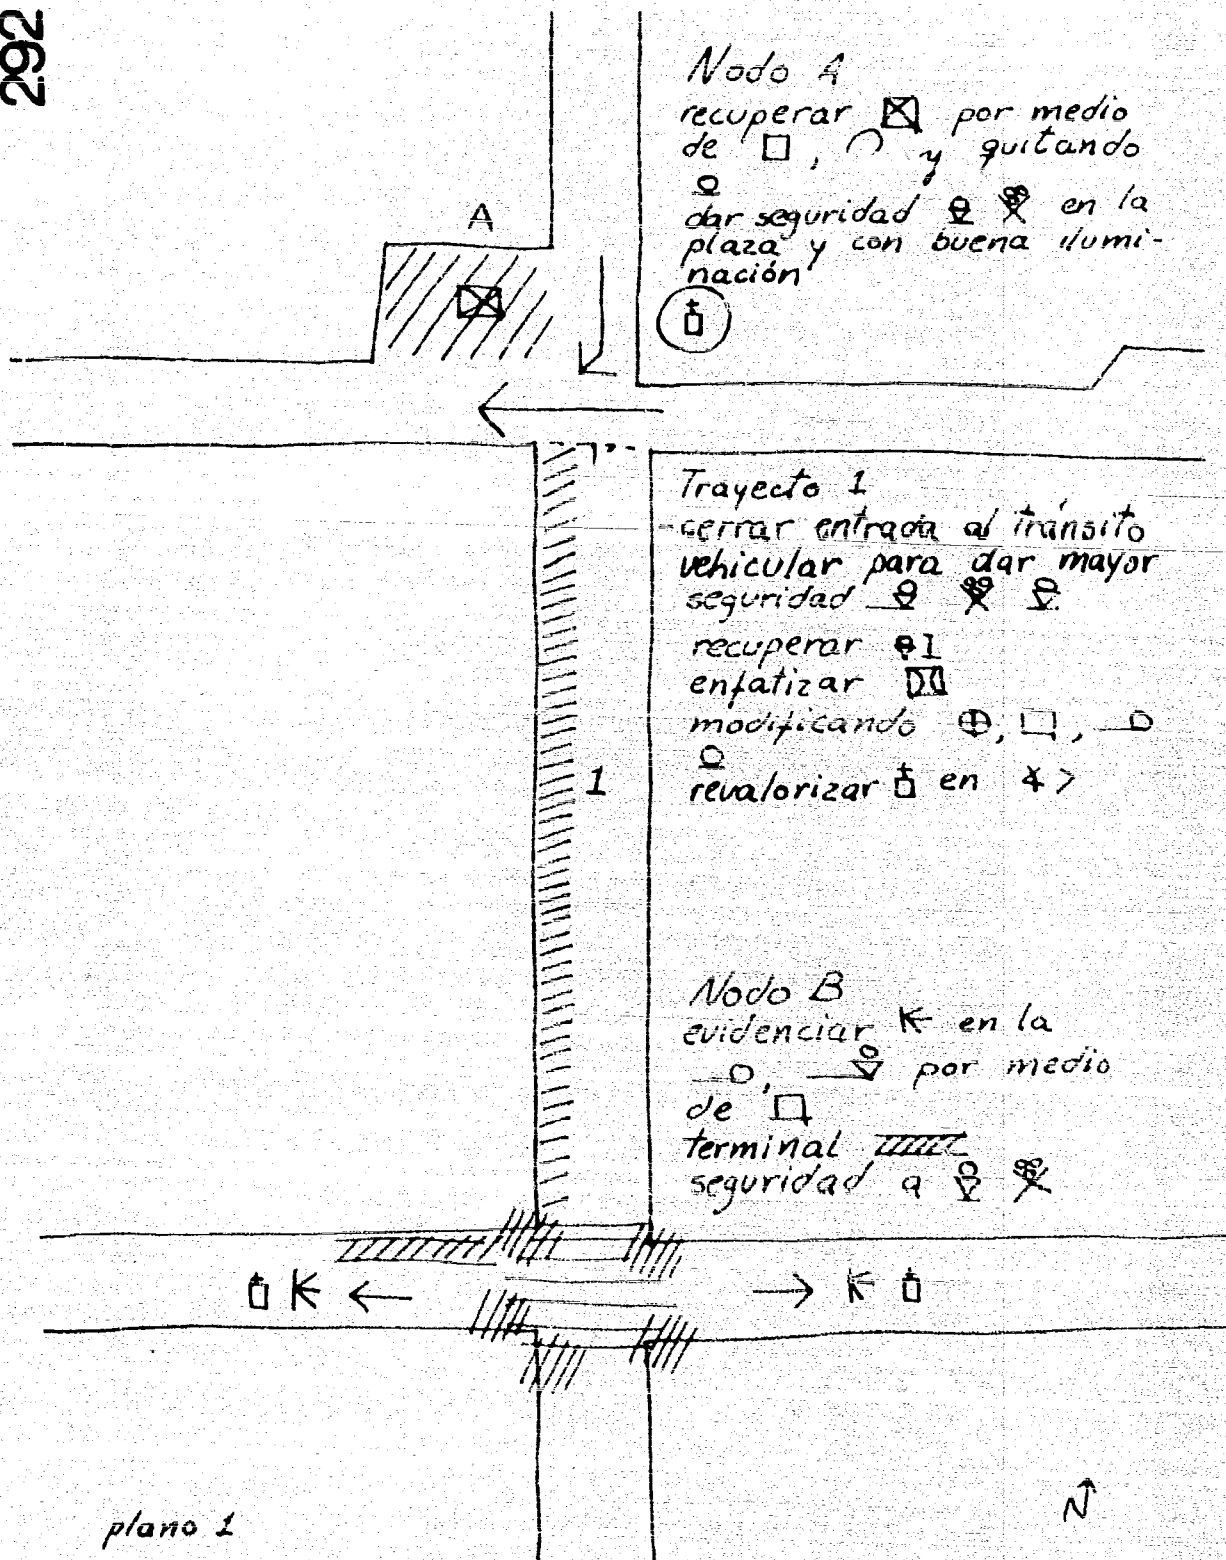 292
Nodo A
recuperar por medio
de , y quitando
dar seguridad en la
plaza y con buena ilumi-
nación
A
Trayecto 1
cerrar entrada al tránsito
vehicular para dar mayor
seguridad
recuperar
enfatizar
modificando , ,
revalorizar en
1
Nodo B
evidenciar en la
, por medio
de
terminal
seguridad a
N
plano 1